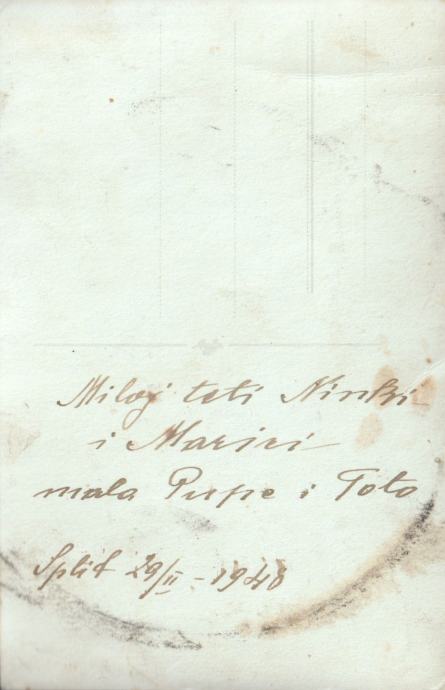 Miloj teti Ninki
i Marici
mala Pupe i Toto
Split 29/II - 1948